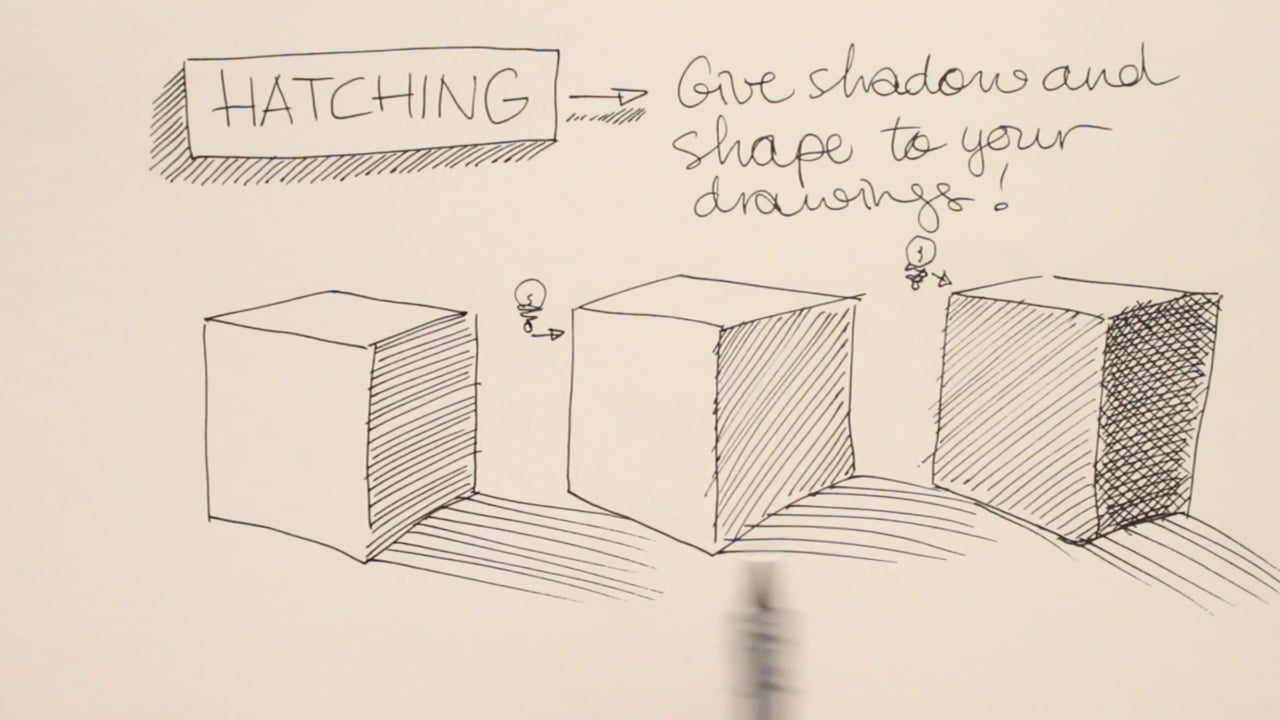 HATCHING
Give shadow and
shape to your
drawings!